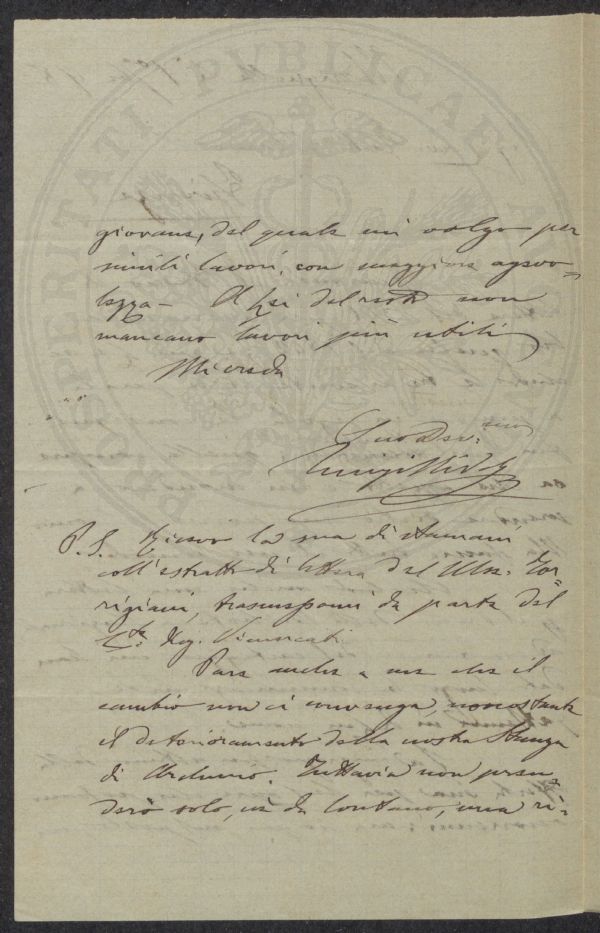 PROSPERITATI PUBLICAE A
giovane, del quale mi valgo per
simili lavori, con maggiore agevo=
lezza - A lei del resto non
mancano lavori più utili
Mi creda
Suo Dev.mo
Luigi
P.S. Ricevo la sua di stamani
coll'estratto di lettera del Mse. Tor=
rigiani, trasmessomi da parte del
Cte. Ing. Vimercati.
Pare anche a me che il
cambio non ci convenga, nonostante
il deterioramento della nostra Stanza
di Archivio. Tuttavia non pren=
derò solo, nè da lontano, una ri=